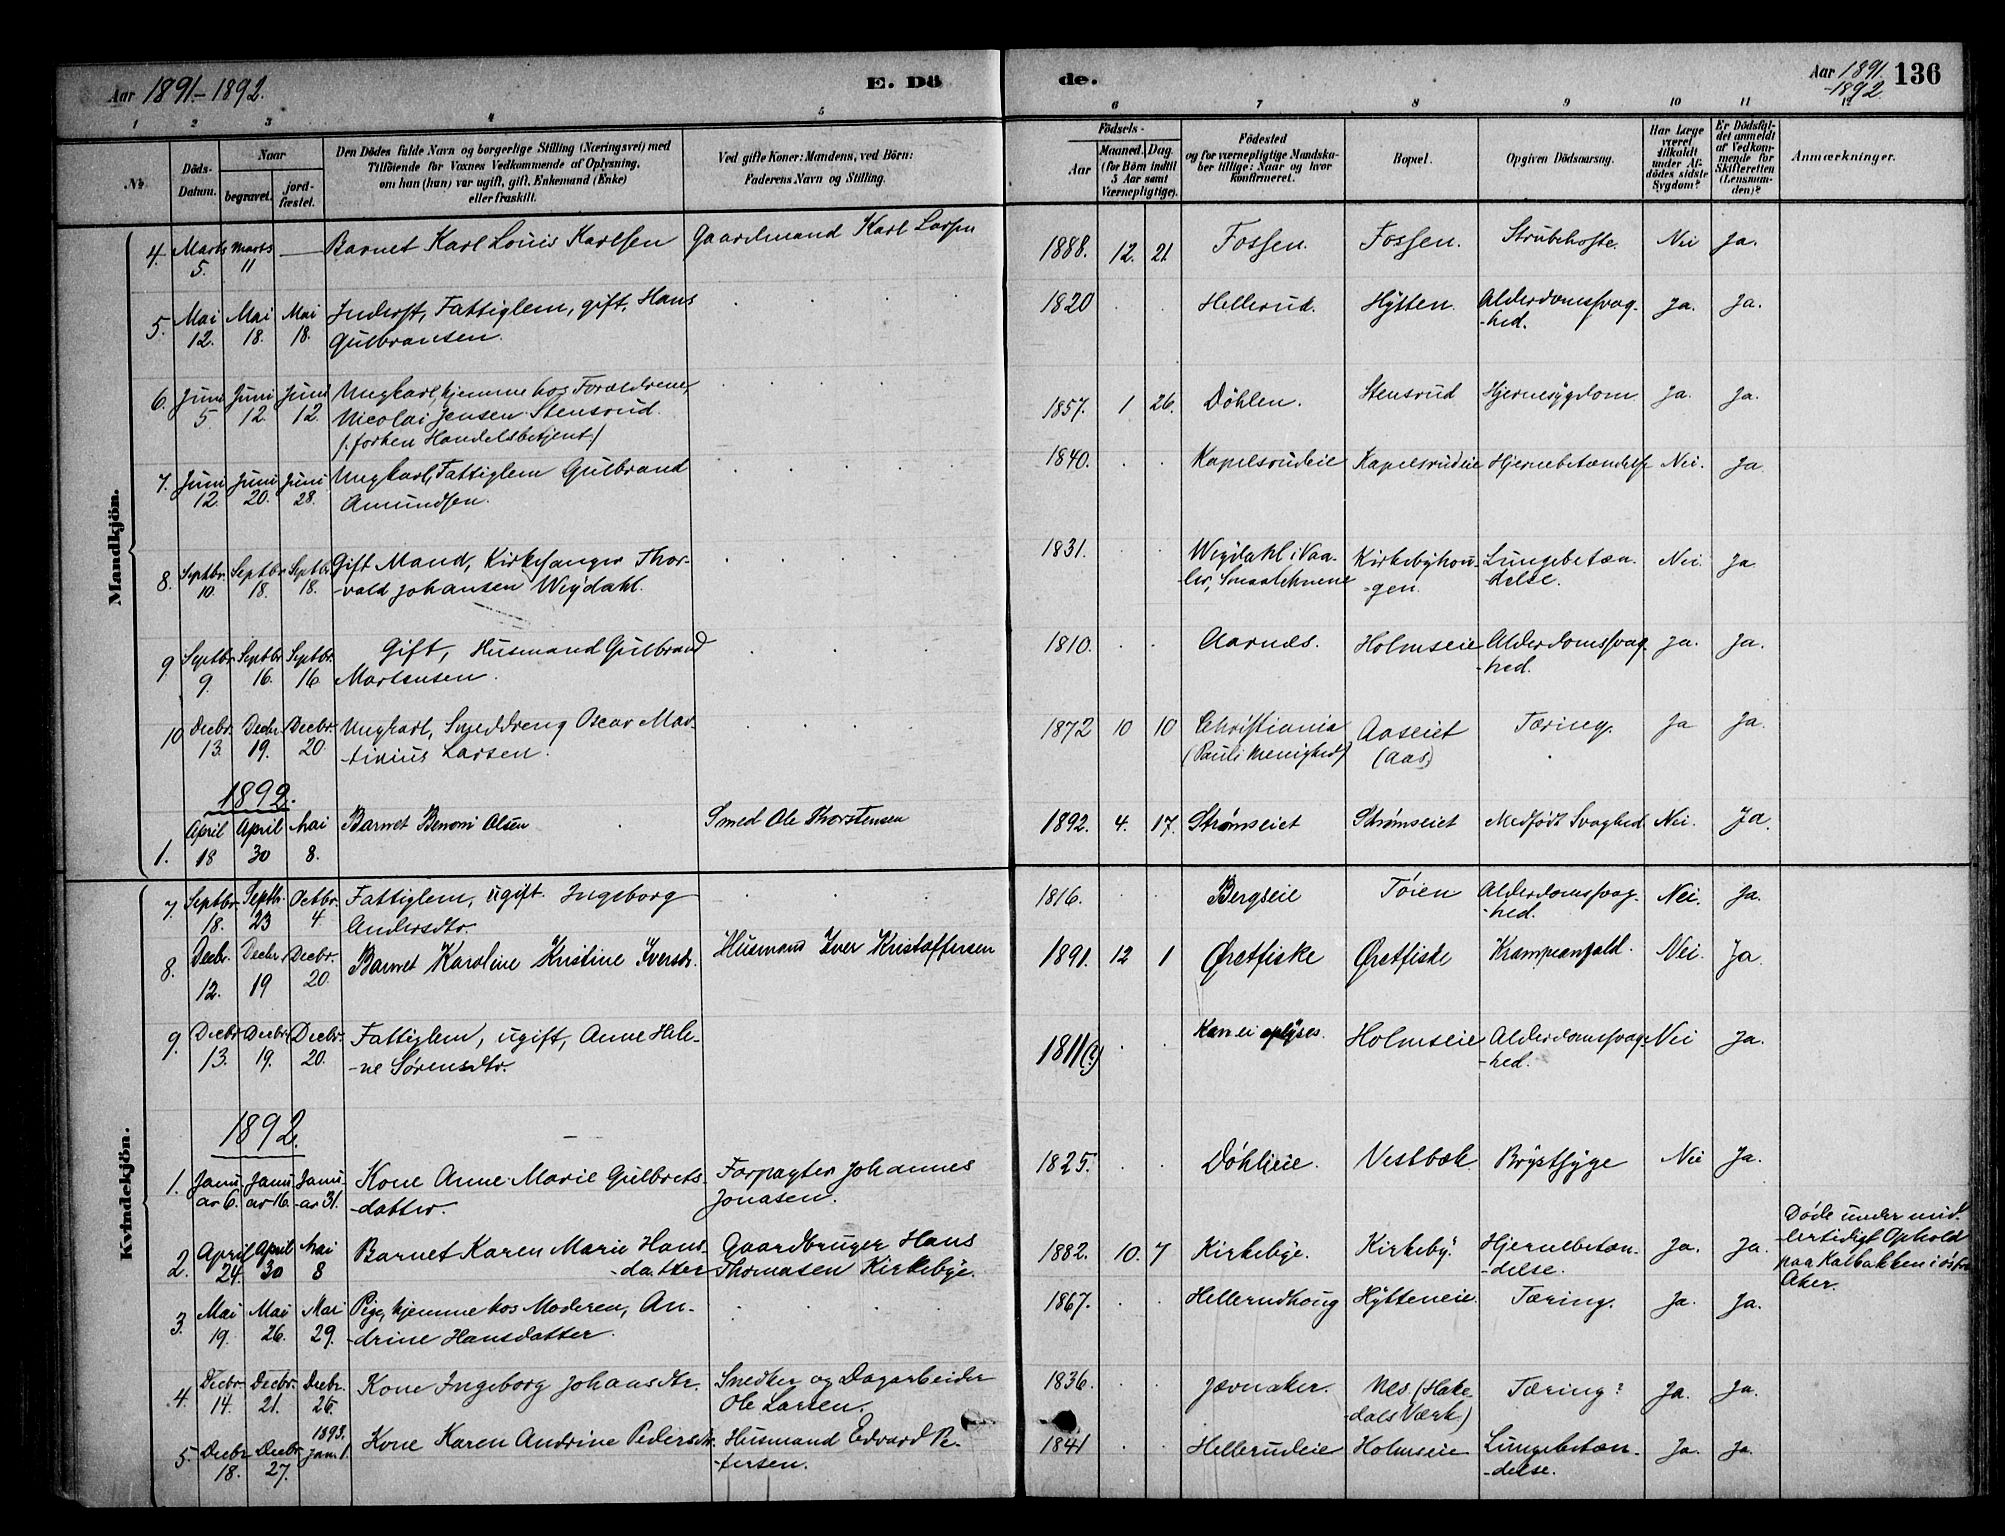 Aar 1891-1892. E. Dö de. Aar 1891 -1892. 136
1 2 3 4 5 6 7 8 9 10 11 12
Nr. Döds-Datum. Naar begravet. jordfæstet. Den Dödes fulde Navn og borgerlige Stilling (Næringsvei) med Tilföiende for Voxnes Vedkommende af Oplysning, om han (hun) var ugift, gift, Enkemand (Enke) eller fraskilt. Ved gifte Koner: Mandens, ved Börn: Faderens Navn og Stilling. Födsels- Aar Maaned. Dag. (for Börn indtil 5 Aar samt Værnepligtige). Födested og for værnepligtige Mandskaber tillige: Naar og hvor konfirmeret. Bopæl. Opgiven Dödsaarsag. Har Læge været tilkaldt under Afdödes sidste Sygdom? Er Dödsfaldet anmeldt af Vedkommende for Skifteretten (Lensmanden)? Anmærkninger.
Mandkjön.
4. Marts 5. Marts 11 — Barnet Karl Louis Karlsen Gaardmand Karl Larsen 1888. 12. 21. Fossen. Fossen. Strubehoste. Nei Ja.
5. Mai 12. Mai 18. Mai 18. Inderst, Fattiglem, gift, Hans
Gulbransen. 1820 Hellerud. Hytten. Alderdomssvag-
-hed. Ja. Ja.
6. Juni 5. Juni 12. Juni 12. Ungkarl, hjemme hos Forældrene,
Nicolai Jensen Stensrud.
(forhen Handelsbetjent) 1857. 1 26. Döhlen. Stensrud Hjernesygdom Ja. Ja.
7. Juni 12. Juni 20. Juni 28. Ungkarl, Fattiglem Gulbrand
Amundsen. 1840. Kapelsrudeie Kapelsrudeie Hjernebetændelse Nei. Ja
8. Septbr. 10. Septbr. 18. Septbr. 18. Gift Mand, Kirkesanger Thor-
-vald Johansen Weydahl. 1831. Weydahl i Vaa-
-ler, Smaalehnene Kirkebyhou-
-gen. Lungebetæn-
-delse. Nei. Ja
9 Septbr. 9. Septbr. 16. Septbr. 16 Gift, Husmand Gulbrand
Martensen. 1810. Aarnæs. Holmseie Alderdomssvag-
-hed. Ja. Ja.
10 Decbr. 13. Decbr. 19. Decbr. 20 Ungkarl, Smeddreng Oscar Mar-
-tinius Larsen. 1872 10 10 Christiania
(Pauli Menighed) Aaseiet
(Aas) Tæring. Ja Ja.
1892.
1. April 18 April 30 Mai 8. Barnet Benoni Olsen Smed Ole Thorstensen 1892. 4. 17. Strømseiet Strømseiet Medfödt Svaghed Nei. Ja.
Kvindekjön.
7. Septbr. 18. Septb. 23 Octbr. 4 Fattiglem, ugift. Ingeborg
Andersdtr. 1816. Bergseie Töien Alderdomssvag-
-hed. Nei. Ja.
8. Decbr. 12. Decbr. 19 Decbr. 20. Barnet Karoline Kristine Iversdr. Husmand Iver Kristoffersen 1891. 12 1 Øretfiske Øretfiske Krampeanfald. Nei. Ja.
9. Decbr 13. Decbr. 19. Decbr. 20. Fattiglem, ugift, Anne Hele-
-ne Sörensdtr. 1811(?) Kan ei oplyses. Holmseie Alderdomssvag-
-hed. Nei Ja.
1892.
1. Janu-
ar 6. Janu-
ar 16. Janu-
-ar 31. Kone Anne Marie Gulbrets-
-datter. Forpagter Johannes
Jonasen. 1825. Döhleie. Vestbæk Brystsyge Nei Ja.
2. April 24. April 30 Mai 8 Barnet Karen Marie Hans-
-datter Gaardbruger Hans
Thomasen Kirkebye. 1882. 10. 7 Kirkebye. Kirkeby. Hjernebetæn-
-delse. Ja. Ja. Döde under mid-
-lertidigt Ophold
paa Kalbakken i østre
Aker.
3. Mai 19. Mai 26. Mai 29. Pige, hjemme hos Moderen, An-
-drine Hansdatter. 1867. Hellerudhoug Hytteneie. Tæring. Ja. Ja.
4. Decbr. 14. Decbr. 21. Decbr. 26. Kone Ingeborg Johansdtr. Snedker og Dagarbeider
Ole Larsen. 1836. Jævnaker. Nes. (Hake-
-dals Værk) Tæring? Ja. Ja.
5. Decbr 18. Decbr. 27. 1893. Jan. 1. Kone Karen Andrine Pedersdtr. Husmand Edvard Pe-
-tersen. 1841 Hellerudeie Holmseie Lungebetæn-
-delse. Ja. Ja.